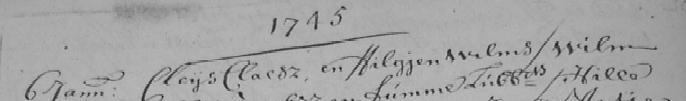 1745
6 Jann: Cleys Claesz, en Hilgjen Wilms / Wilm
Lümme Lübb / Hille